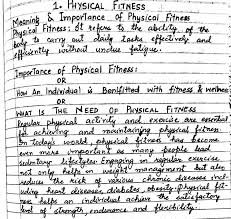 1. PHYSICAL FITNESS
Meaning & Importance of Physical Fitness
Physical Fitness: It refers to the ability of the
body to carry out daily tasks effectively and
efficiently without undue fatigue.
Importance of Physical Fitness:
OR
How An Individual is Benifitted with fitness & wellness
OR
WHAT IS THE NEED OF PHYSICAL FITNESS
Regular physical activity and exercise are essential
for achieving and maintaining physical fitness.
In today's world, physical fitness has become
even more important as many people lead
sedentary lifestyles. Engaging in regular exercise
not only helps in weight management but also
reduces the risk of various chronic diseases inclu-
ding heart diseases, diabetes, obesity. Physical fit-
ness helps an individual achieve the satisfactory
level of strength endurance and flexibility.